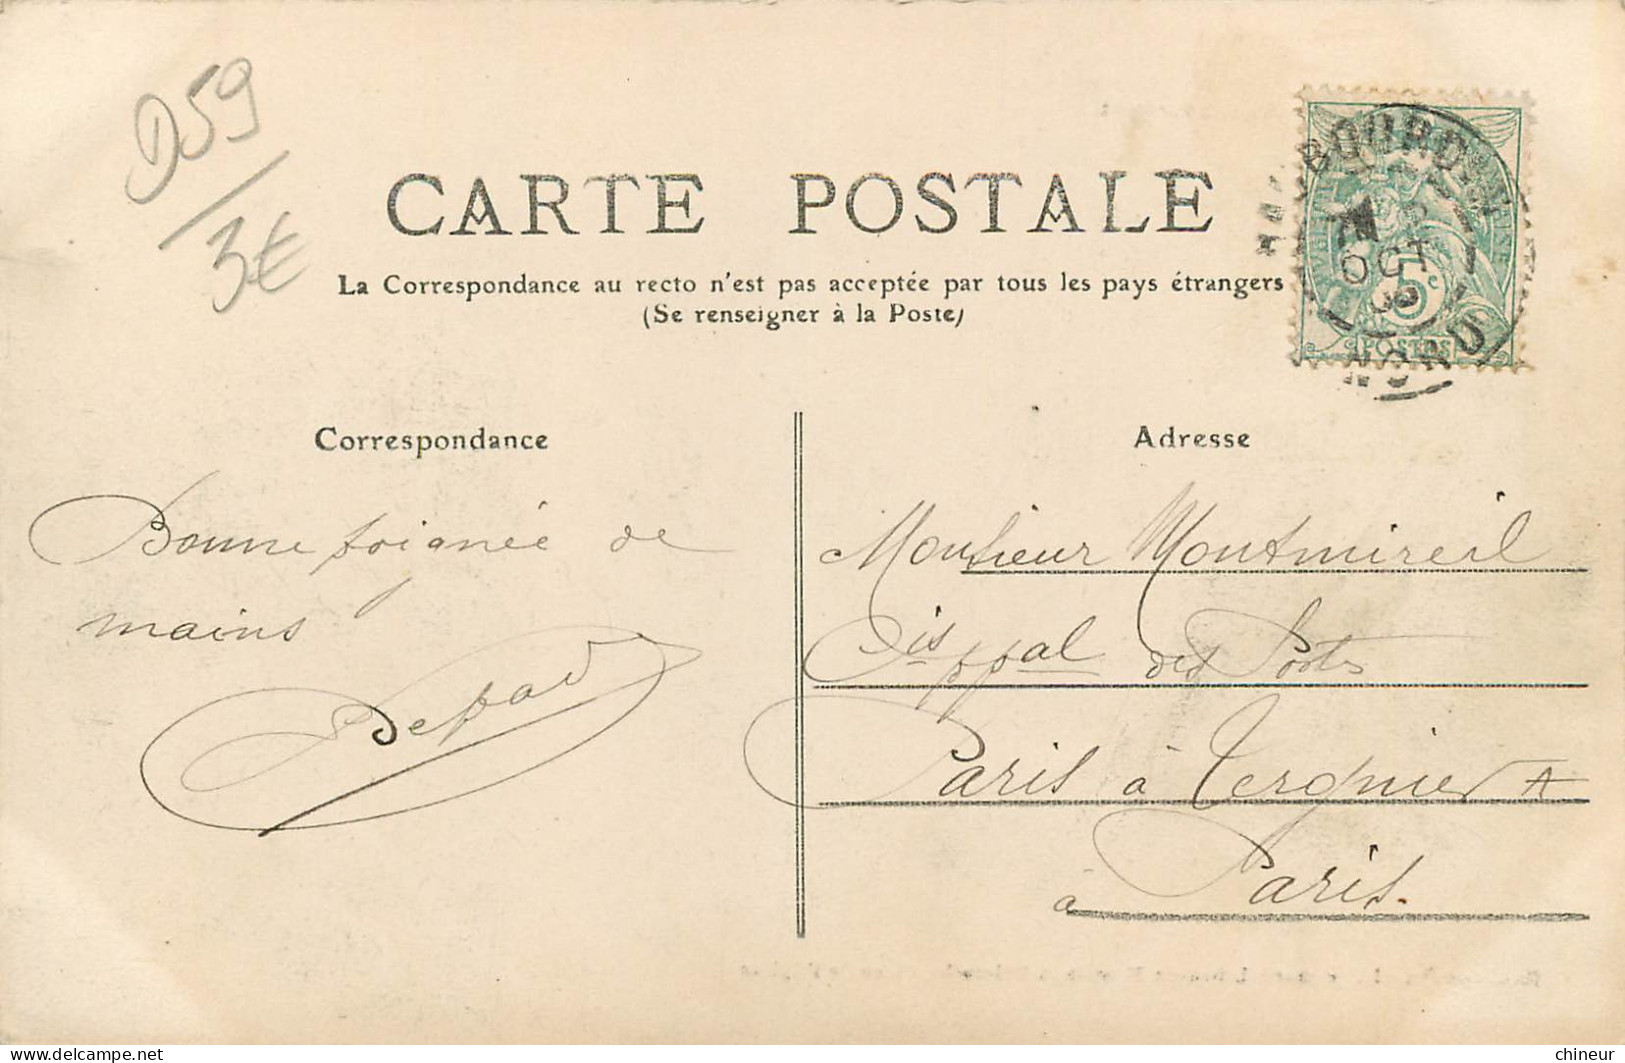 D59
3€
CARTE POSTALE
La Correspondance au recto n'est pas acceptée par tous les pays étrangers
(Se renseigner à la Poste)
OCT
5c
POSTES
NORD
Correspondance
Bonne poignée de
mains
Adresse
Monsieur Montmireil
ppal des Postes
Paris à Tergnier A
à Paris.
chineur